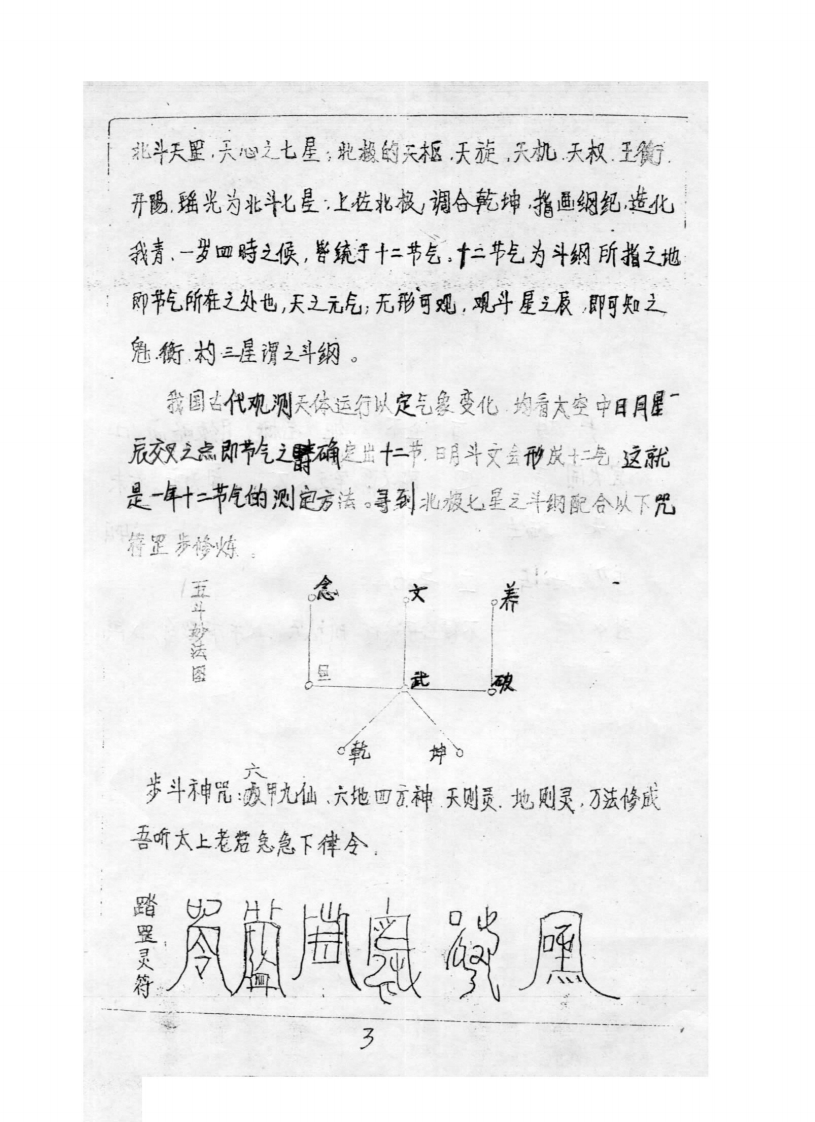 北斗天罡、天心之七星；北极的天枢、天旋、天机、天权、玉衡、
开陽、瑶光为北斗七星；上位北极，调合乾坤，指画纲纪，造化
我青、一岁四時之候，皆统于十二节气。十二节气为斗纲所指之地
即节气所在之处也，天之元气；无形可观，观斗星之辰，即可知之
魁、衡、杓三星谓之斗纲。
我国古代观测天体运行以定气象变化，均看太空中日月星
辰交叉之点即节气之 确定出十二节、日月斗文会形成十二气，这就
是一年十二节气的测定方法。寻到北极七星之斗纲配合以下咒
符罡步修炼。
五斗秒法图
念 文 养
旦 武 破
乾 坤
步斗神咒：六甲九仙、六地四方神、天则灵、地则灵，万法修成
吾听太上老君急急下律令。
踏罡灵符
3